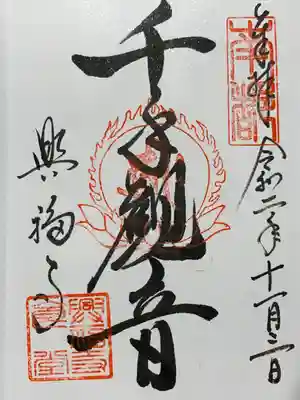 南都
奉拝 令和二年十一月三日
千手觀音
興福寺